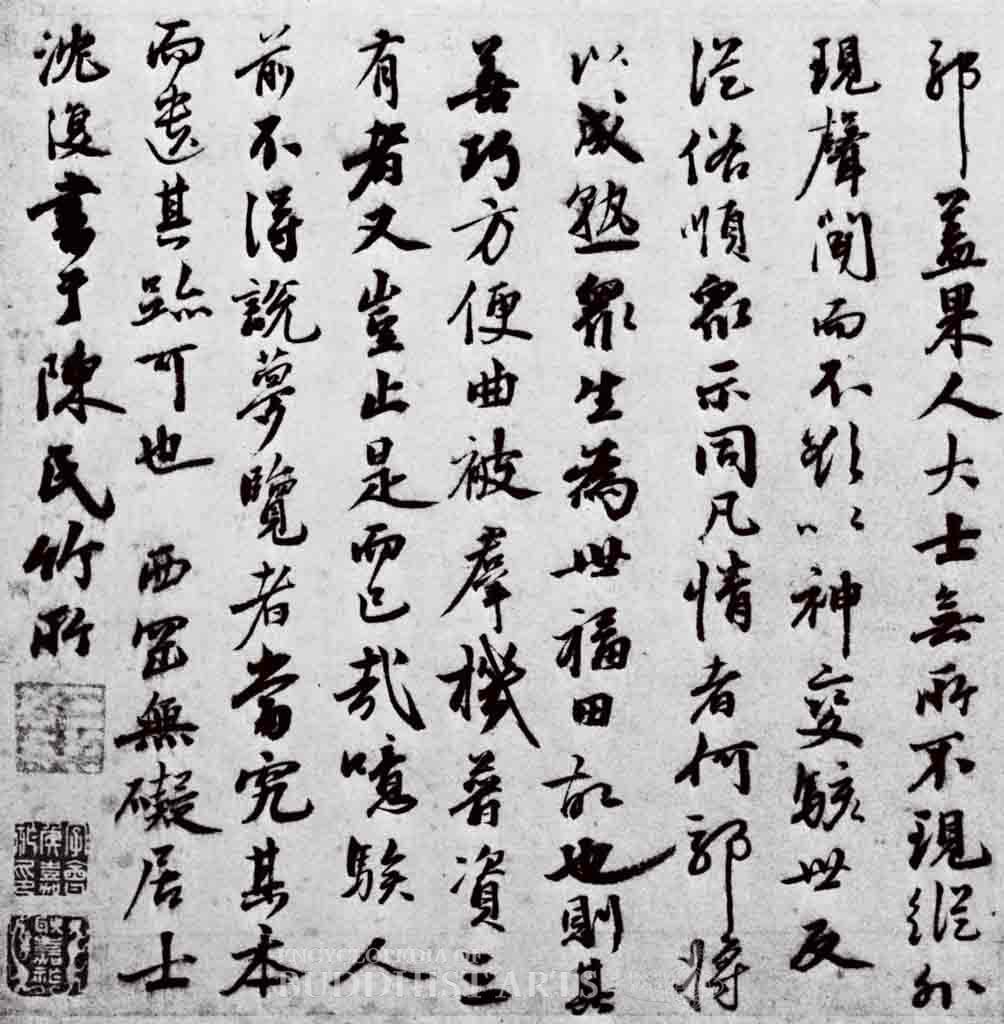 耶蓋果人大士無所不現縱外
現聲聞而不顯以神變駭世反
從俗順衆示同凡情者何耶將
以成熟衆生為世福田故也則其
善巧方便曲被羣機普資三
有者又豈止是而已哉噫騃人
前不得說夢覽者當究其本
而遺其跡可也 西罔無礙居士
沈復書于陳民竹所
ENCYCLOPEDIA OF
BUDDHIST ARTS